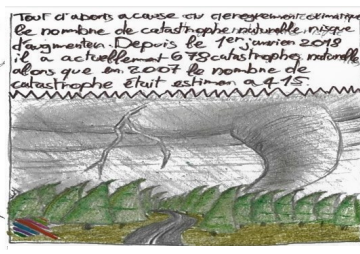 Tout d'abord a cause du dereglement climatique
le nombre de catastrophe naturelle risque
d'augmenter. Depuis le 1er janvier 2018
il a actuellement 678 catastrophe naturelle
alors que en 2007 le nombre de
catastrophe était estimer a 415.